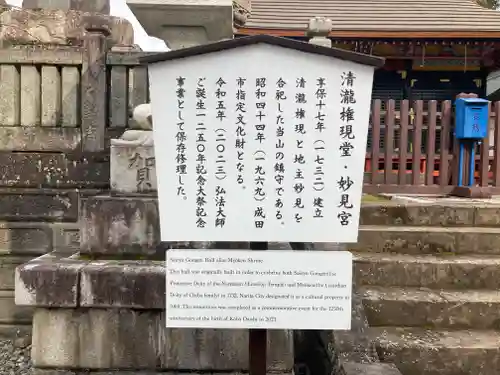 清瀧権現堂・妙見宮
享保十七年（一七三二）建立
清瀧権現と地主妙見を
合祀した当山の鎮守である。
昭和四十四年（一九六九）成田
市指定文化財となる。
令和五年（二〇二三）弘法大師
ご誕生一二五〇年記念大祭記念
事業として保存修理した。
賀
Seiryu Gongen Hall alias Myoken Shrine
This hall was originally built in order to enshrine both Seiryu Gongen(the
Protective Deity of the Narita-san Shinsho-ji Temple) and
Deity of Chiba family) in 1732. Narita City designated it as a cultural property in
1969. The restoration was completed as a commemorative event for the 1250th
anniversary of the birth of Kobo Daishi in 2023.